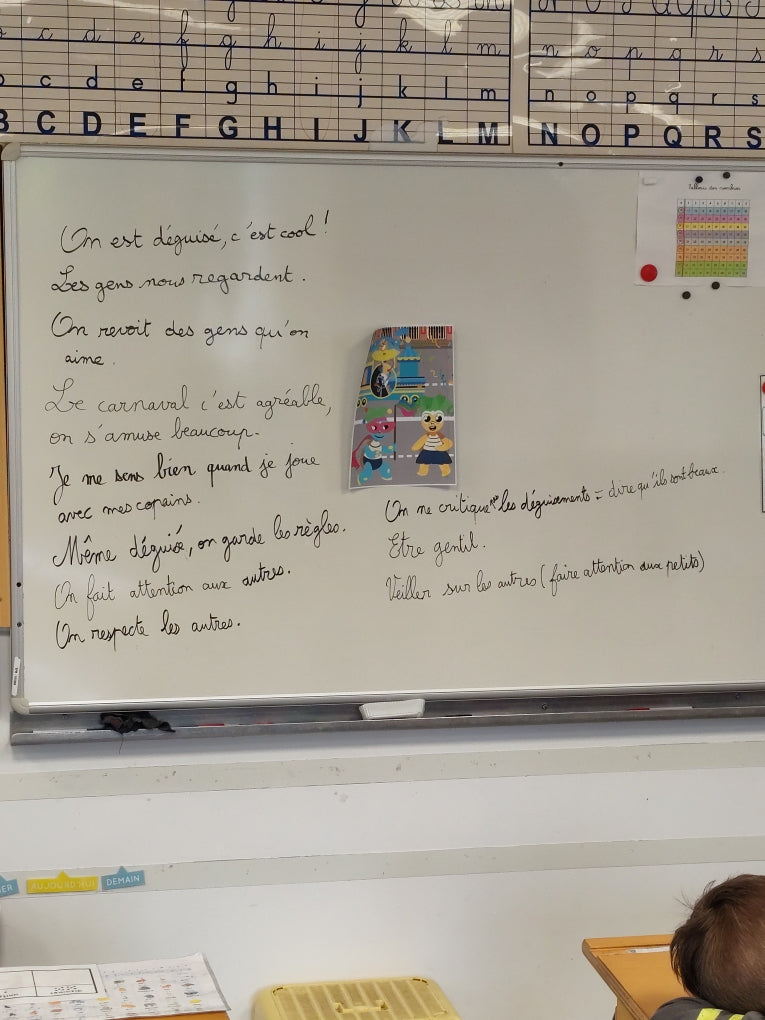 c d e f g h i j k l m
n o p q r s
c d e f g h i j k l m
n o p q r s
B C D E F G H I J K L M
N O P Q R S
Tableau des nombres
On est déguisé, c'est cool !
Les gens nous regardent.
On revoit des gens qu'on
aime.
Le carnaval c'est agréable,
on s'amuse beaucoup.
Je me sens bien quand je joue
avec mes copains.
Même déguisé, on garde les règles.
On fait attention aux autres.
On respecte les autres.
On ne critique pas les déguisements = dire qu'ils sont beaux.
Etre gentil.
Veiller sur les autres (faire attention aux petits)
ER AUJOURD'HUI DEMAIN